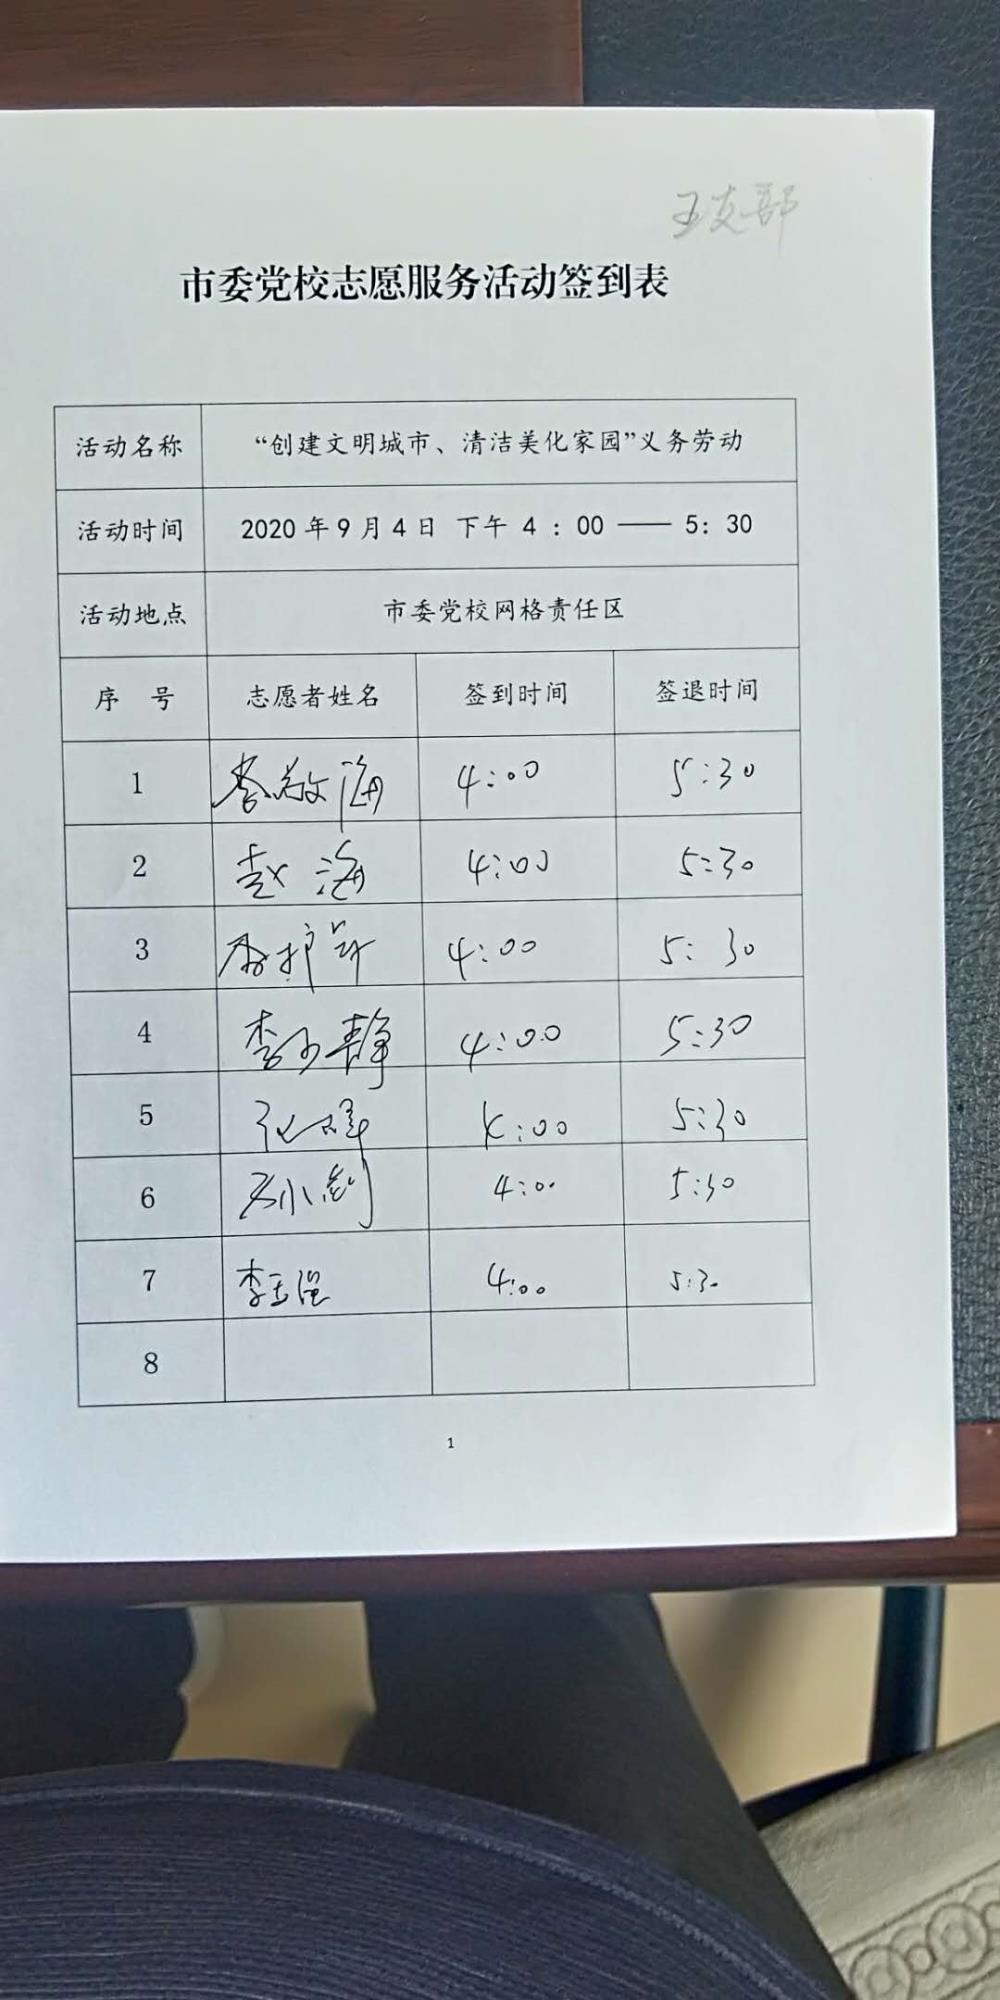 王支部
市委党校志愿服务活动签到表
活动名称 “创建文明城市、清洁美化家园”义务劳动
活动时间 2020年9月4日 下午 4 : 00 —— 5: 30
活动地点 市委党校网格责任区
序 号 志愿者姓名 签到时间 签退时间
1 李敬海 4:00 5:30
2 赵海 4:00 5:30
3 4:00 5:30
4 李小静 4:00 5:30
5 4:00 5:30
6 4:00 5:30
7 李玉强 4:00 5:30
8
1